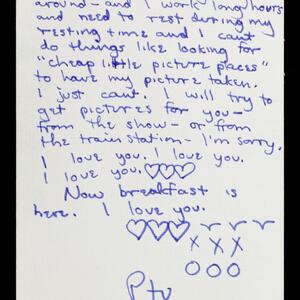 around - and I work long hours
and need to rest during my
resting time and I can't
do things like looking for
"cheap little picture places"
to have my picture taken.
I just can't. I will try to
get pictures for you -
from the show - or from
the train station - I'm sorry.
I love you. I love you.
I love you. ♡♡♡
Now breakfast is
here. I love you.
♡♡♡
X X X
O O O